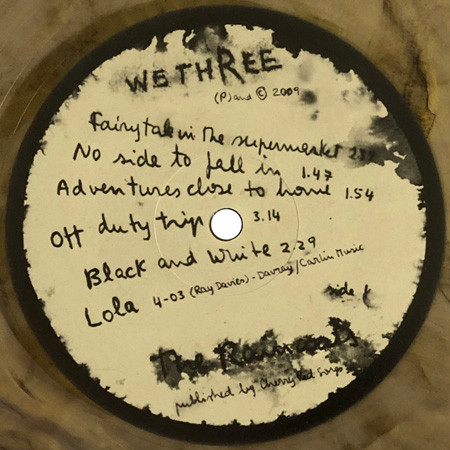 WE THREE
(P) and © 2009
Fairytale in The supermarket
No side to fall in 1.47
Adventures close to home 1.54
Off duty trip 3.14
Black and White 2.29
Lola 4-03 (Ray Davies) - Davray/Carlin Music
side
The Raincoats
published by Cherry Red Songs